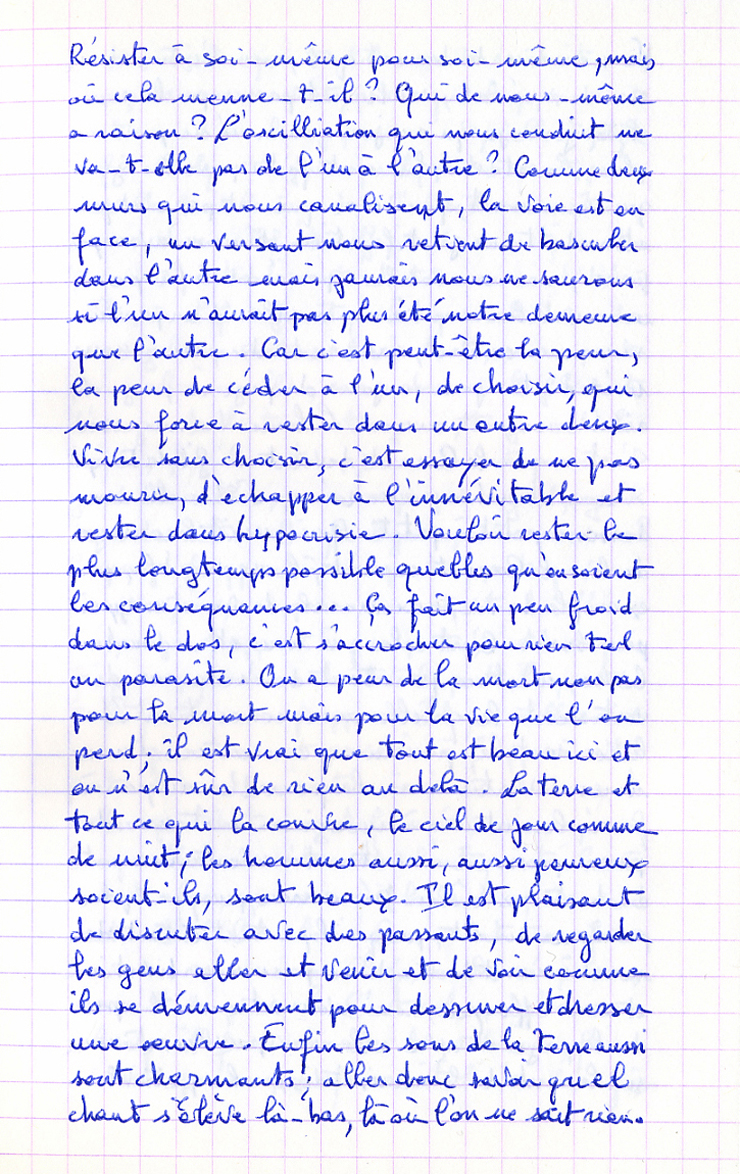 Résister à soi-même pour soi-même, mais
où cela menne-t-il ? Qui de nous-même
a raison ? L'oscilliation qui nous conduit ne
va-t-elle pas de l'un à l'autre ? Comme deux
murs qui nous canalisent, la voie est en
face, un versant nous retient de basculer
dans l'autre mais jamais nous ne saurons
si l'un n'aurait pas plus été notre demeure
que l'autre. Car c'est peut-être la peur,
la peur de céder à l'un, de choisir, qui
nous force à rester dans un entre deux.
Vivre sans choisir, c'est essayer de ne pas
mourir, d'echapper à l'innévitable et
rester dans hypocrisie. Vouloir rester le
plus longtemps possible quelles qu'en soient
les conséquances... Ça fait un peu froid
dans le dos, c'est s'accrocher pour rien tel
un parasite. On a peur de la mort non pas
pour la mort mais pour la vie que l'on
perd ; il est vrai que tout est beau ici et
on n'est sûr de rien au delà. La terre et
tout ce qui la couvre, le ciel de jour comme
de nuit ; les hommes aussi, aussi peureux
soient-ils, sont beaux. Il est plaisant
de discuter avec des passants, de regarder
les gens aller et venir et de voir comme
ils se démennent pour dessiner et dresser
une oeuvre. Enfin les sons de la Terre aussi
sont charmants ; aller donc savoir quel
chant s'élève là-bas, là où l'on ne sait rien.